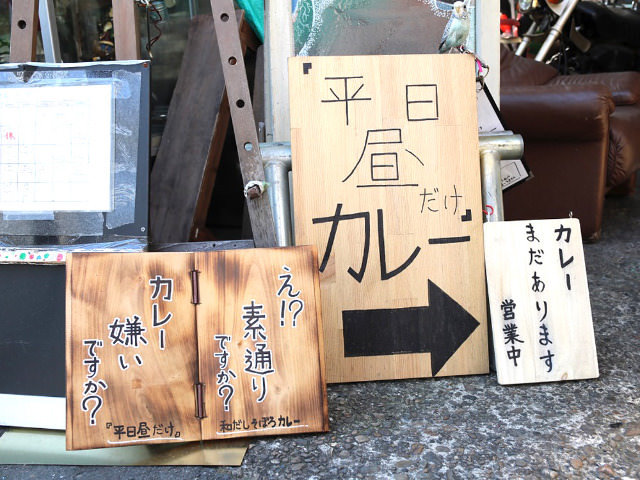 え!?
素通り
ですか?
和だしそぼろカレー
カレー
嫌い
ですか?
『平日昼だけ』
『平日
昼
だけ』
カレー
カレー
まだあります
営業中
休